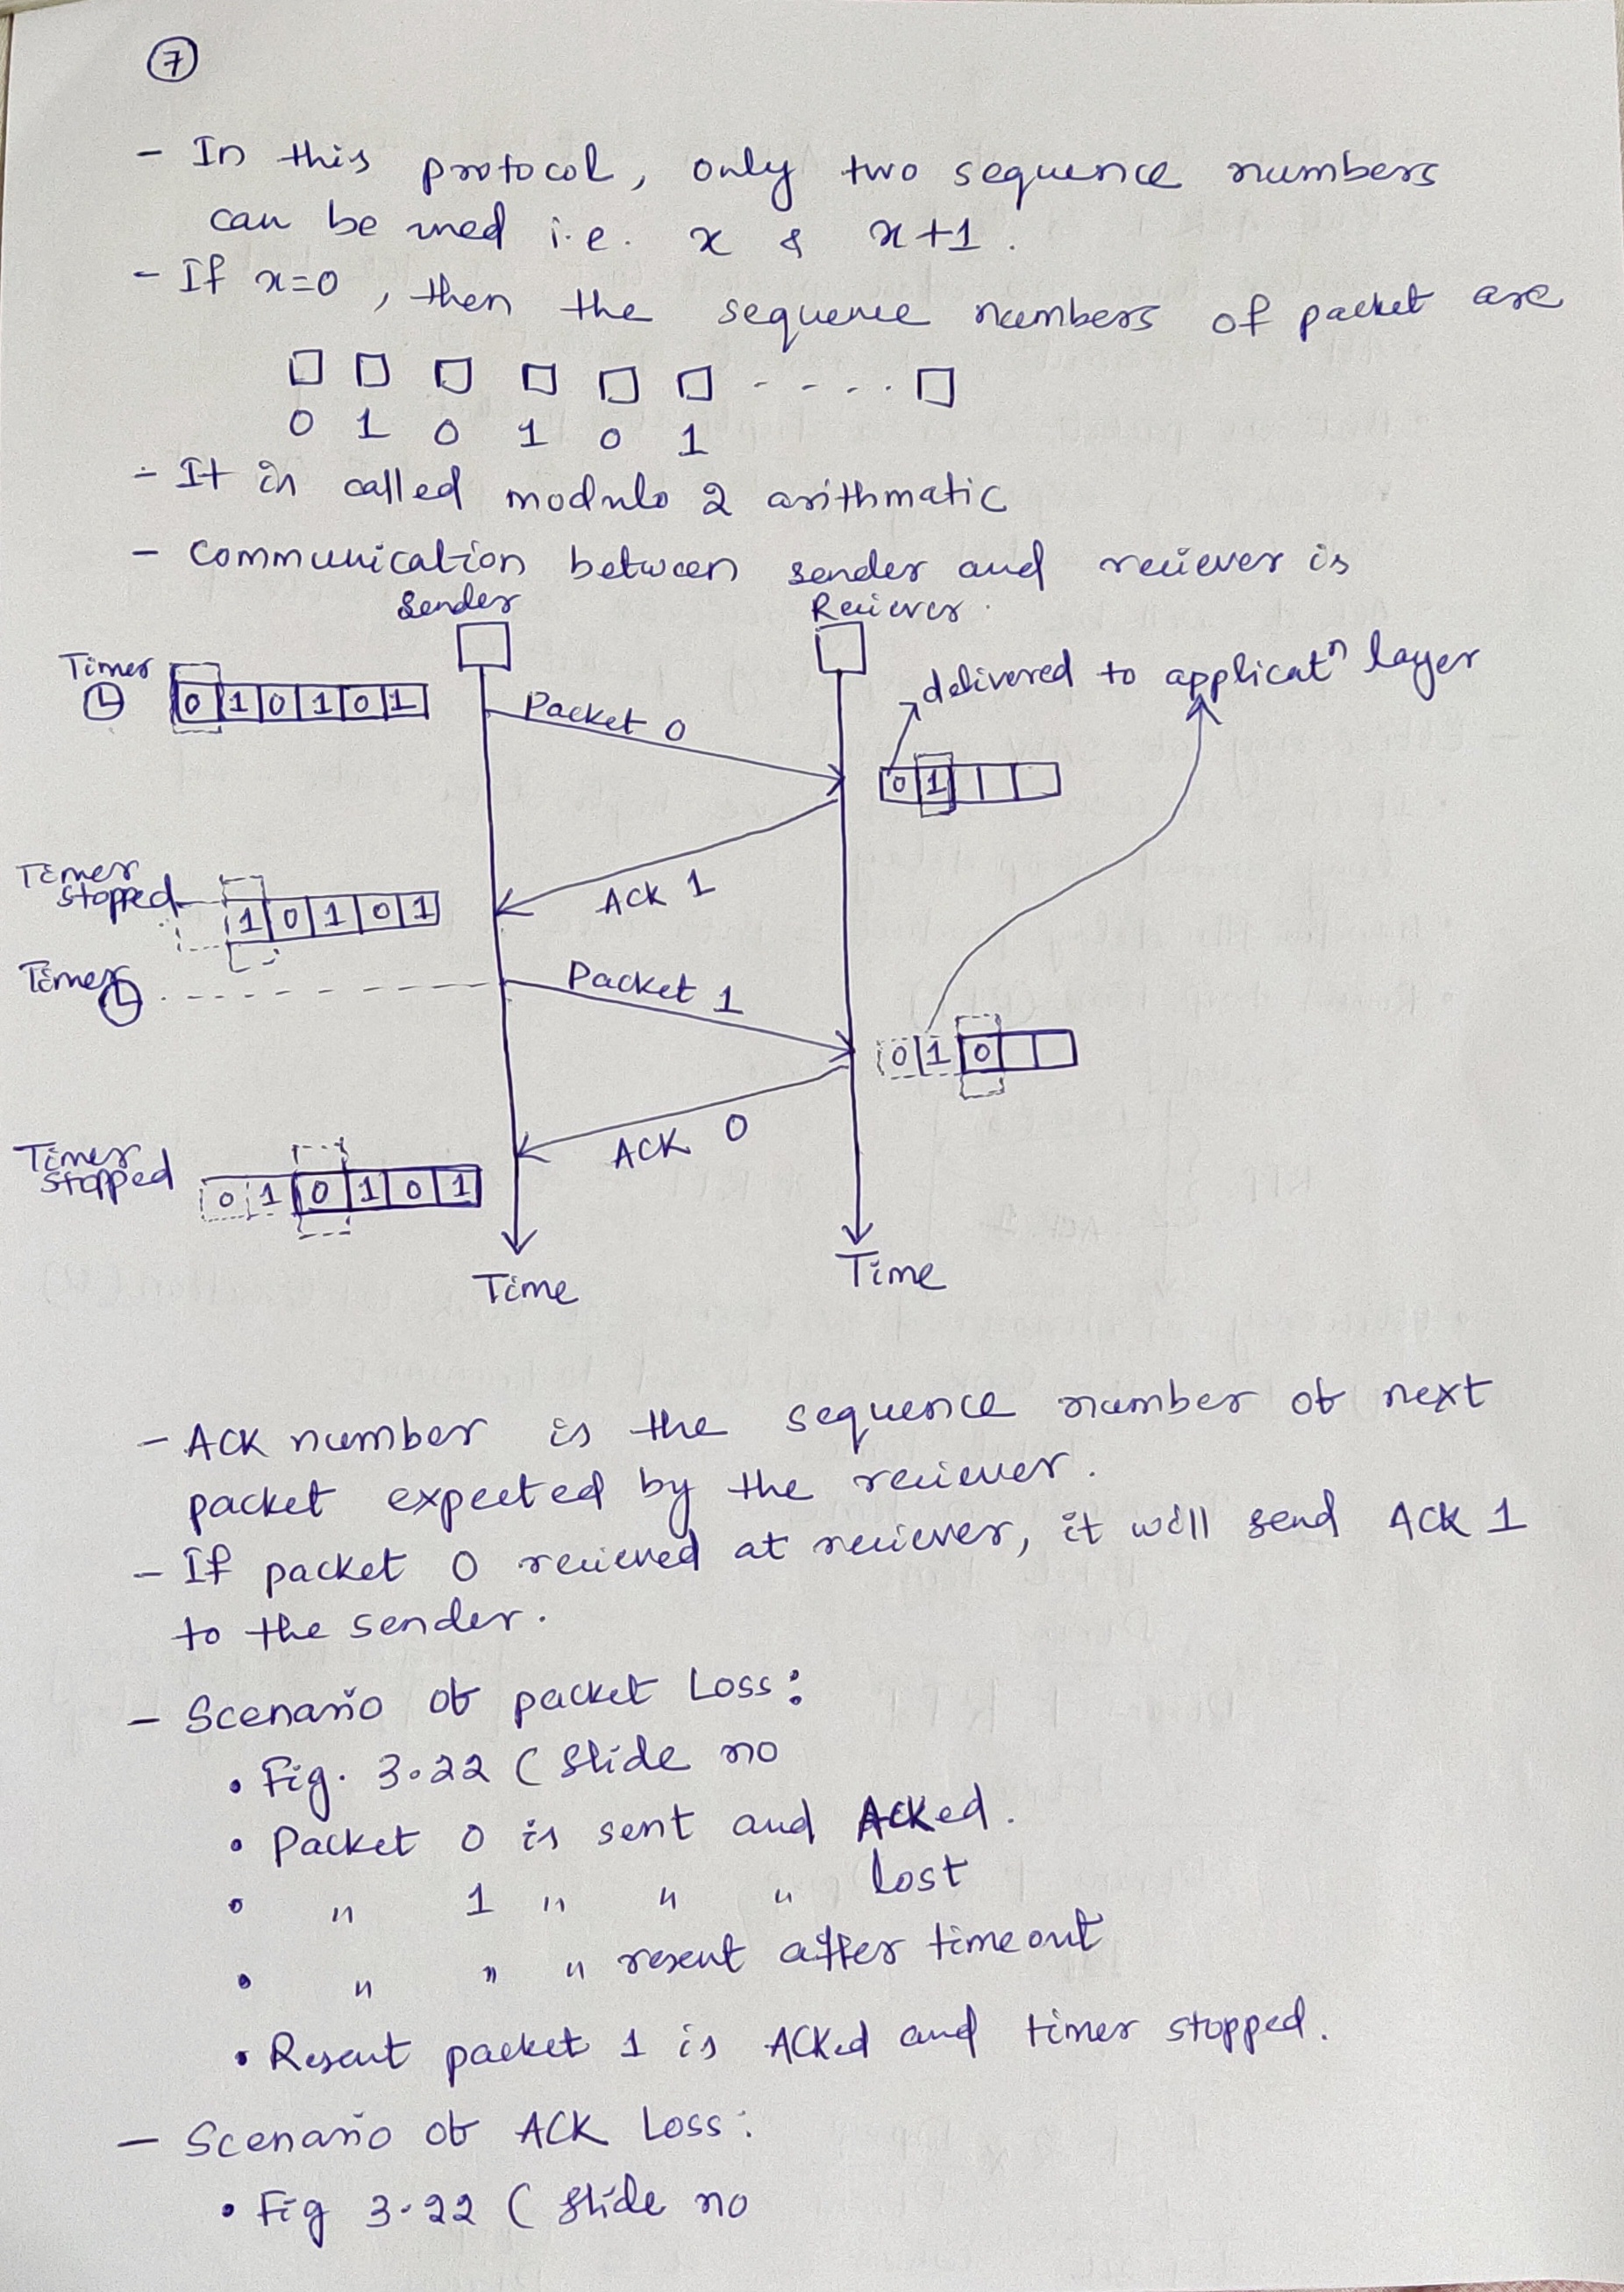 7
- In this protocol, only two sequence numbers
can be used i.e. x & x+1.
- If x=0, then the sequence numbers of packet are
- - - . .
0 1 0 1 0 1
- It is called modulo 2 arithmatic
- Communication between sender and reciever is
Sender Reciever.
Timer
0 1 0 1 0 1
Packet 0
delivered to applicatⁿ layer
0 1
Timer
stopped
1 0 1 0 1
ACK 1
Timer
Packet 1
0 1 0
ACK 0
Timer
stopped
0 1 0 1 0 1
Time Time
- ACK number is the sequence number of next
packet expected by the reciever.
- If packet 0 recieved at reciever, it will send ACK 1
to the sender.
- Scenario of packet Loss:
• Fig. 3.22 ( Slide no
• Packet 0 is sent and ACKed.
• " 1 " " " lost
• " " " resent after timeout
• Resent packet 1 is ACKed and timer stopped.
- Scenario of ACK Loss:
• Fig 3.22 ( Slide no